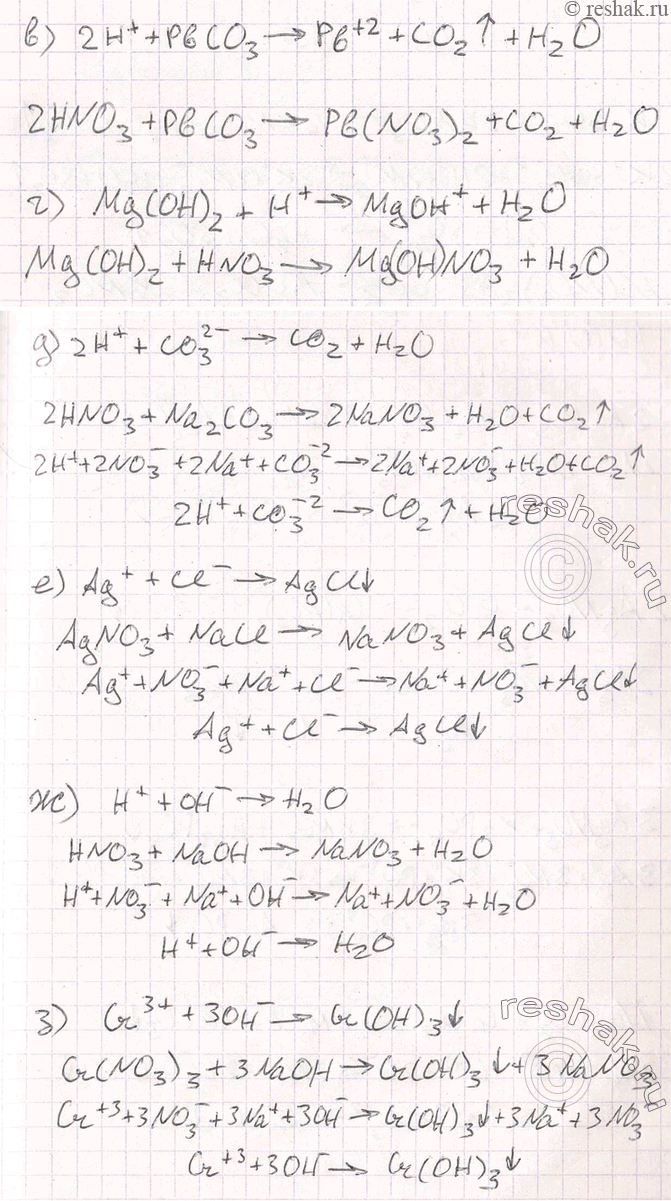 © reshak.ru
в) 2H⁺ + PbCO₃ → Pb⁺² + CO₂↑ + H₂O
2HNO₃ + PbCO₃ → Pb(NO₃)₂ + CO₂ + H₂O
г) Mg(OH)₂ + H⁺ → MgOH⁺ + H₂O
Mg(OH)₂ + HNO₃ → Mg(OH)NO₃ + H₂O
д) 2H⁺ + CO₃²⁻ → CO₂ + H₂O
2HNO₃ + Na₂CO₃ → 2NaNO₃ + H₂O + CO₂↑
2H⁺ + 2NO₃⁻ + 2Na⁺ + CO₃⁻² → 2Na⁺ + 2NO₃⁻ + H₂O + CO₂↑
2H⁺ + CO₃⁻² → CO₂↑ + H₂O
reshak.ru
©
е) Ag⁺ + Cl⁻ → AgCl↓
AgNO₃ + NaCl → NaNO₃ + AgCl↓
Ag⁺ + NO₃⁻ + Na⁺ + Cl⁻ → Na⁺ + NO₃⁻ + AgCl↓
Ag⁺ + Cl⁻ → AgCl↓
ж) H⁺ + OH⁻ → H₂O
HNO₃ + NaOH → NaNO₃ + H₂O
H⁺ + NO₃⁻ + Na⁺ + OH⁻ → Na⁺ + NO₃⁻ + H₂O
H⁺ + OH⁻ → H₂O
reshak.ru
©
з) Cr³⁺ + 3OH⁻ → Cr(OH)₃↓
Cr(NO₃)₃ + 3NaOH → Cr(OH)₃↓ + 3NaNO₃
Cr⁺³ + 3NO₃⁻ + 3Na⁺ + 3OH⁻ → Cr(OH)₃↓ + 3Na⁺ + 3NO₃⁻
Cr⁺³ + 3OH⁻ → Cr(OH)₃↓